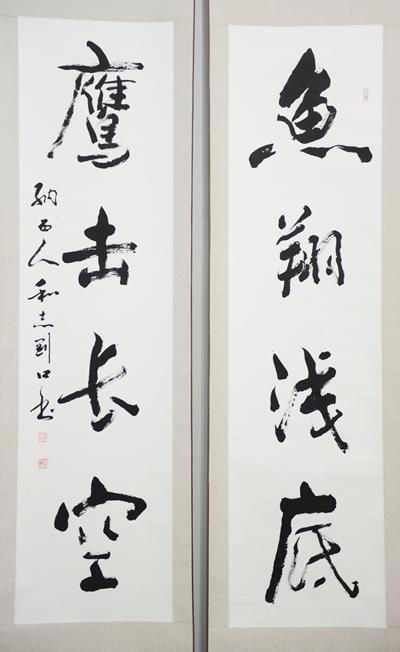 鹰击长空
鱼翔浅底
纳西人和志刚口书